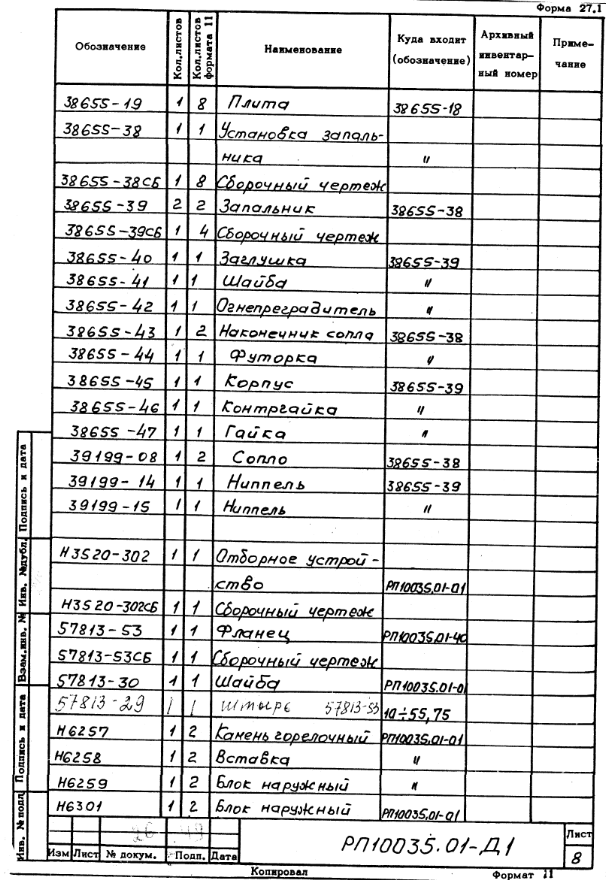 Форма 27.1
Обозначение Кол.листов Кол.листов формата 11 Наименование Куда входит (обозначение) Архивный инвентарный номер Примечание
38655-19 1 8 Плита 38655-18
38655-38 1 1 Установка запаль-
ника "
38655-38СБ 1 8 Сборочный чертеж
38655-39 2 2 Запальник 38655-38
38655-39СБ 1 4 Сборочный чертеж
38655-40 1 1 Заглушка 38655-39
38655-41 1 1 Шайба "
38655-42 1 1 Огнепреградитель "
38655-43 1 2 Наконечник сопла 38655-38
38655-44 1 1 Футорка "
38655-45 1 1 Корпус 38655-39
38655-46 1 1 Контргайка "
38655-47 1 1 Гайка "
39199-08 1 2 Сопло 38655-38
39199-14 1 1 Ниппель 38655-39
39199-15 1 1 Ниппель "
Н3520-302 1 1 Отборное устрой-
ство РП10035.01-01
Н3520-302СБ 1 1 Сборочный чертеж
57813-53 1 1 Фланец РП10035.01-40
57813-53СБ 1 1 Сборочный чертеж
57813-30 1 1 Шайба РП10035.01-0
57813-29 1 1 штырь 57813-53 10÷55,75
Н6257 1 2 Камень горелочный РП10035.01-01
Н6258 1 2 Вставка "
Н6259 1 2 Блок наружный "
Н6301 1 2 Блок наружный РП10035.01-01
Инв. № подл. Подпись и дата Взам.инв. № Инв. №дубл. Подпись и дата
Изм Лист № докум. Подп. Дата
РП10035.01-Д1
Лист
8
Копировал Формат 11